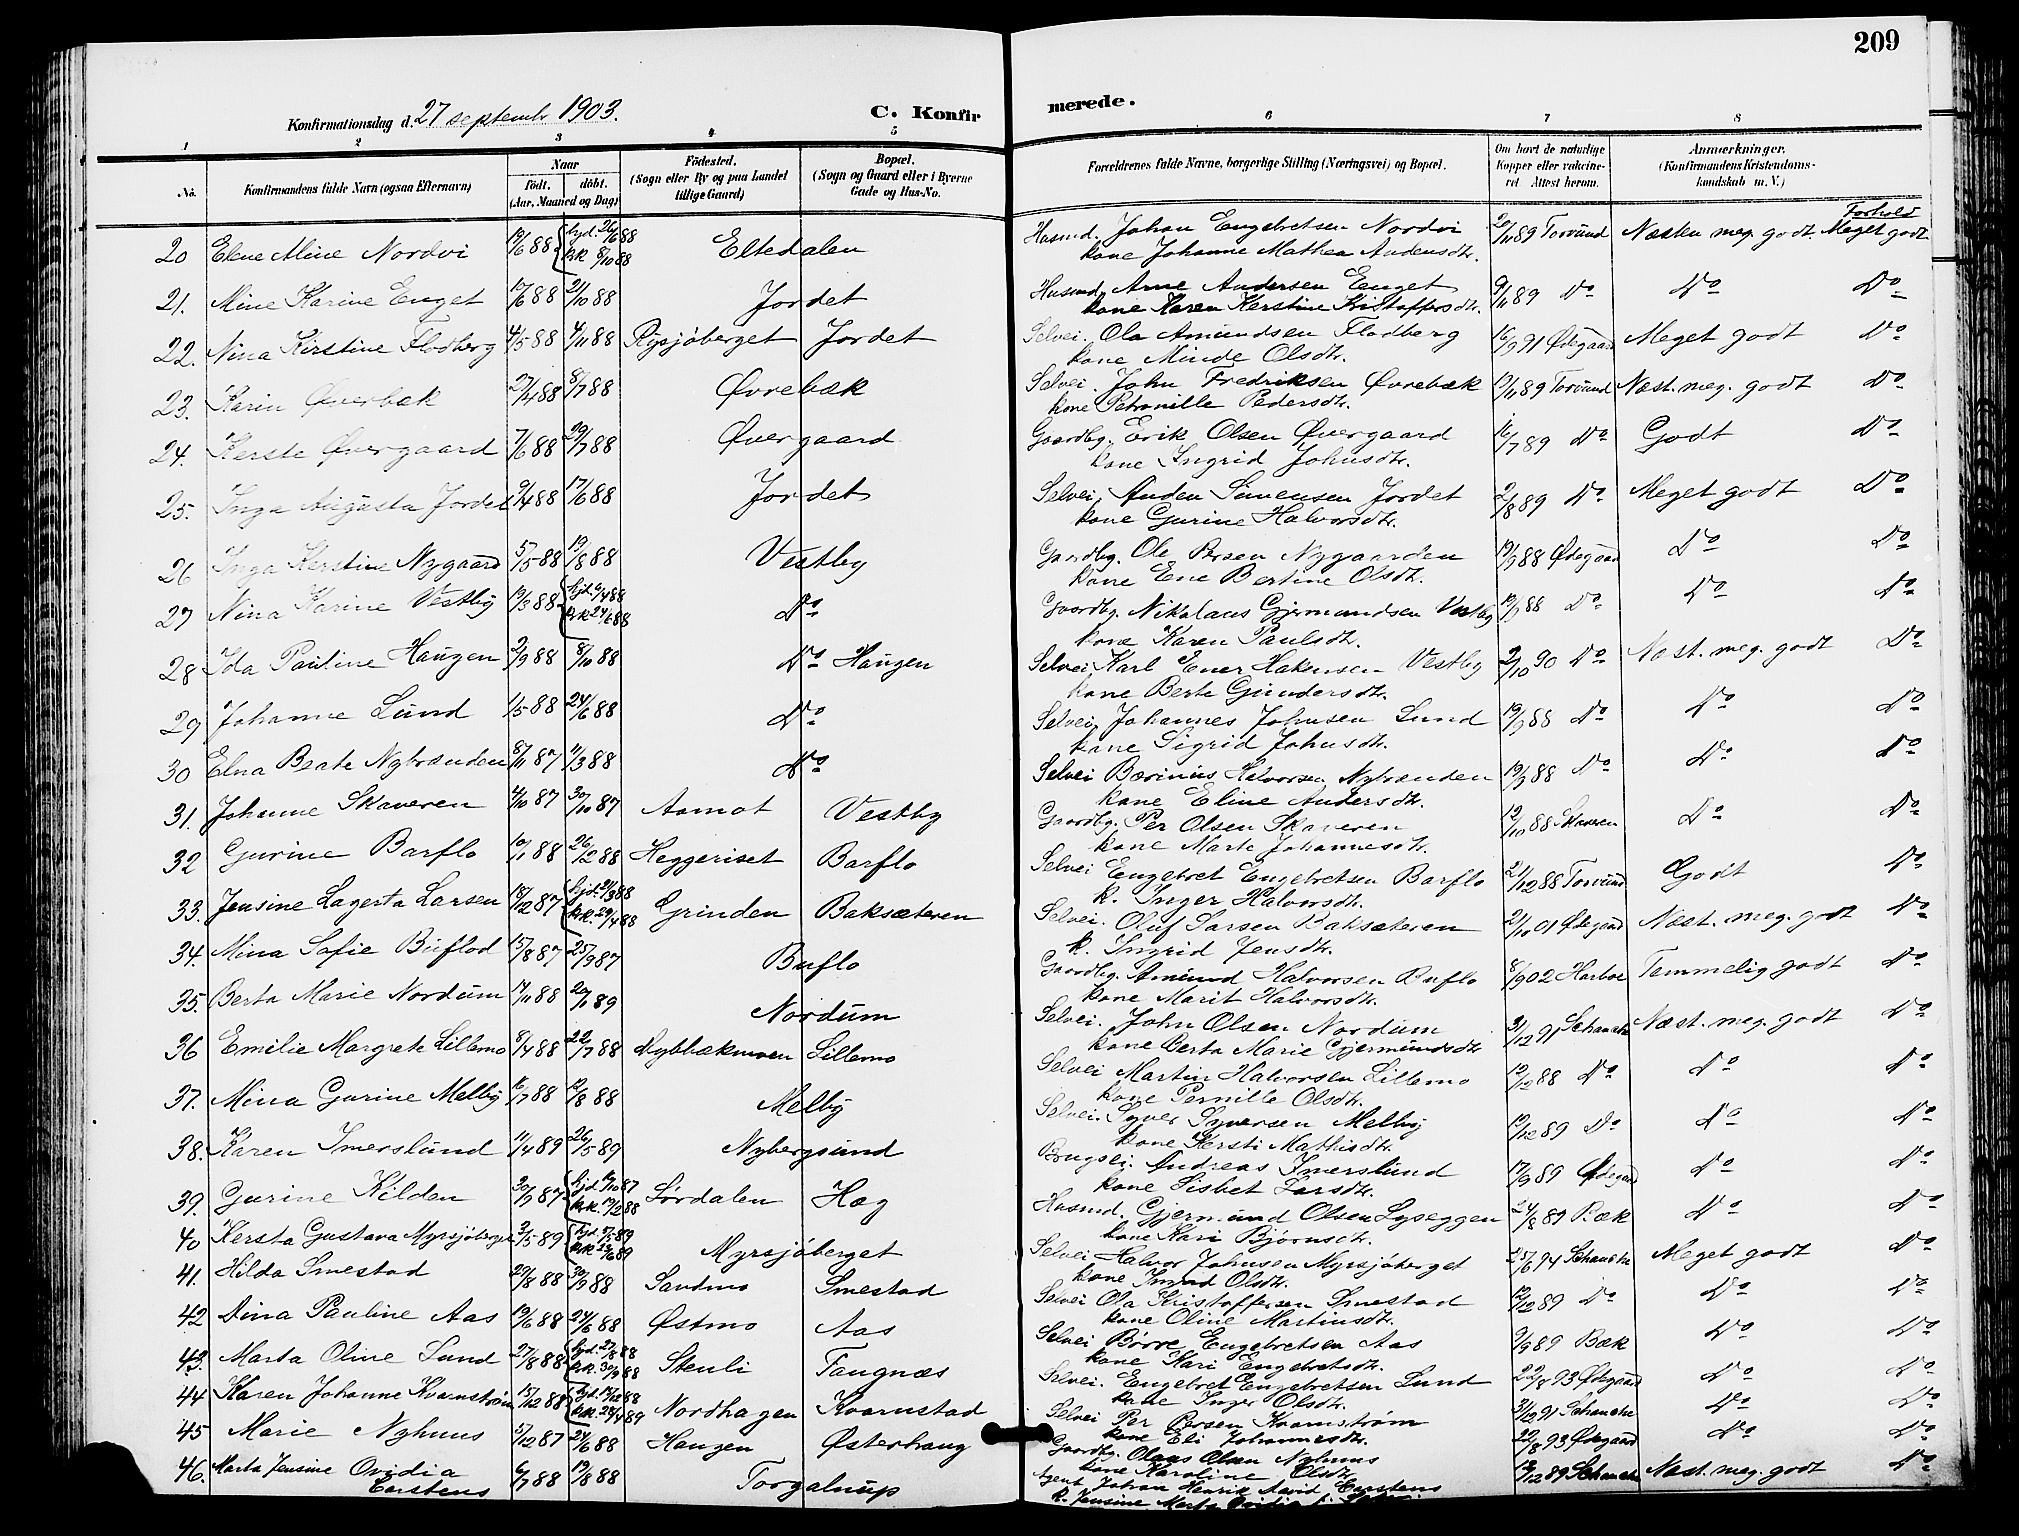 209
Konfirmationsdag d. 27 septembr 1903.
C. Konfir
merede.
1 2 3 4 5 6 7 8
No.
Konfirmandens fulde Navn (ogsaa Efternavn)
Naar
født. døbt.
(Aar, Maaned og Dag)
Födested.
(Sogn eller By og paa Landet
tillige Gaard)
Bopæl.
(Sogn og Gaard eller i Byerne
Gade og Hus-No.
Forældrenes fulde Navne, borgerlige Stilling (Næringsvei) og Bopæl.
Om havt de naturlige
Kopper eller vaccine-
ret Attest herom.
Anmærkninger.
(Konfirmandens Kristendoms-
kundskab m. V.)
Forhold
20 Elene Mine Nordvi 19/6 88 hjd. 26/6 88 Eltedalen Husmd. Johan Engebretsen Nordvi 20/11 89 Torvund Næsten meg. godt. Meget godt
krk 8/10 88 kone Johanne Mathea Andensdtr.
21. Mine Karine Enget 10/6 88 21/10 88 Jordet Husmd. Arne Andersen Eenget 9/11 89 Do Do Do
kone Karen Kerstine Kristoffersdtr.
22. Nina Kirstine Flodberg 4/5 88 4/11 88 Rysjöberget Jordet Selvei. Ola Amundsen Flodberg 16/9 91 Ødegaard Meget godt Do
kone Minde Olsdtr.
23. Karin Øverbæk 27/4 88 8/7 88 Øvrebæk Selvei. John Fredriksen Øvrebæk 19/11 89 Torvund Næst. meg. godt Do
kone Petronille Pedersdtr.
24. Kerste Øvergaard 7/6 88 29/7 88 Øvergaard Gaardbg. Erik Olsen Øvergaard 16/7 89 Do Godt Do
kone Ingrid Johnsdtr.
25. Inga Augusta Jordet 9/4 88 17/6 88 Jordet Selvei. Anden Simensen Jordet 2/8 89 Do Meget godt Do
kone Gurine Halvorsdtr.
26 Inga Kerstine Nygaard 5/5 88 19/8 88 Vestby Gaardbg. Ole Persen Nygaarden 19/9 88 Ødegaard Do Do
kone Ene Bertine Olsdtr.
27 Nina Karine Vestby 19/3 88 hjd. 9/4 88 Do Gaardbg. Nikolaus Gjermundsen Vestby 19/9 88 Do Do Do
krk 24/6 88 kone Karen Paulsdtr.
28 Ida Pauline Haugen 2/9 88 8/10 88 Do Haugen Selvei Karl Ener Hakensen Vestby 2/10 90 Do Næst. meg. godt Do
kone Berte Gundersdtr.
29 Johanne Lund 1/5 88 24/6 88 Do Selvei, Johannes Johnsen Lund 19/9 88 Do Do Do
kone Sigrid Johnsdtr.
30 Elna Beate Nybrænden 8/11 87 11/3 88 Do Selvei Bærinius Halvorsen Nybrænden 19/9 88 Do Do Do
kone Eline Andersdtr.
31. Johanne Skaveren 4/10 87 30/10 87 Aamot Vestby Gaardbg. Per Olsen Skaveren 12/10 88 Skaveren Do Do
kone Marte Johannesdtr.
32 Gurine Barflo 10/1 88 26/2 88 Heggeriset Barflo Selvei Engebret Engebretsen Barflo 21/12 88 Torvund Godt Do
k. Inger Halvorsdtr.
33. Jensine Lagerta Larsen 18/12 87 hjd. 21/3 88 Grinden Baksæteren Selvei. Oluf Larsen Baksæteren 21/10 01 Ødegaard Næst. meg. godt Do
krk. 29/4 88 k. Ingrid Jensdtr.
34. Mina Sofie Buflod 15/8 87 25/9 87 Buflo Gaardbg. Amund Halvorsen Buflo 8/9 02 Harboe Temmelig godt Do
kone Marit Halvorsdtr.
35. Berta Marie Nordum 14/11 88 20/1 89 Nordum Selvei. John Olsen Nordum 31/12 91 Schanche Næst. meg. godt Do
kone Berta Marie Gjermundsdtr
36 Emilie Margrete Lillemo 8/4 88 22/7 88 Nybbækmoen Lillemo Selvei Martin Halvorsen Lillemo 19/12 88 Do Do Do
kone Pernille Olsdtr.
37. Mina Gurine Melby 16/7 88 12/8 88 Melby Selvei. Syver Syversen Melby 19/12 89 Do Do Do
kone Kersti Mathisdtr.
38. Karen Imerslund 11/4 89 26/5 89 Nybergsund Brugsei. Andreas Imerslund 17/9 89 Ødegaard Do Do
kone Lisbet Larsdtr.
39. Gurine Kilden 30/9 87 hjd. Sørdalen Hag Husmd. Gjermund Olsen Lyseggen 24/8 89 Bæk Do Do
krk. 19/2 88 kone Kari Bjørnsdtr.
40 Kersta Gustava Myrsjöberget 3/5 89 hjd. 5/5 89 Myrsjöberget Selvei Halvor Johnsen Myrsjöberget 25/6 94 Schanche Meget godt Do
kone Olsdtr.
41. Hilda Smestad 29/8 88 30/9 88 Sandmo Smestad Selvei Ola Kristoffersen Smestad 12/12 89 Do Do Do
kone Oline Martinsdtr.
42 Dina Pauline Aas 19/6 88 24/6 88 Østmo Aas Selvei Børre Engebretsen Aas 9/9 89 Bæk Do Do
kone Kari Engebretsdtr.
43. Marta Oline Lund 27/8 88 hjd. 27/8 88 Stenli Fangnæs Selvei. Engebret Engebretsen Lund 22/8 93 Ødegaard Do Do
krk. 30/9 88 kone Inger Olsdtr.
44 Karen Johanne Kvarnstrøm 15/12 88 hjd. 19/12 88 Nordhagen Kvarnstad Selvei Per Persen Kvarnstrøm 31/12 91 Schanche Do Do
krk. 28/4 89 kone Eli Johannesdtr.
45 Marie Nyhuus 5/12 87 24/6 88 Haugen Østerhaug Gaardbg. Olaus Olsen Nyhuus 22/8 93 Ødegaard Do Do
kone Karoline Olsdtr.
46. Marta Jensine Ovidia 6/7 88 19/8 88 Torgalsrup Agent Johan Henrik David Carstens 19/12 89 Schanche Næst. meg. godt Do
Carstens k. Jensine Marta